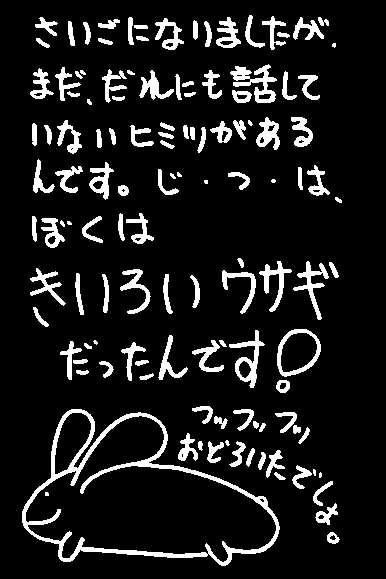 さいごになりましたが、
まだ、だれにも話して
いないヒミツがある
んです。じ・つ・は、
ぼくは
きいろいウサギ
だったんです!
フッフッフッ
おどろいたでしょ。